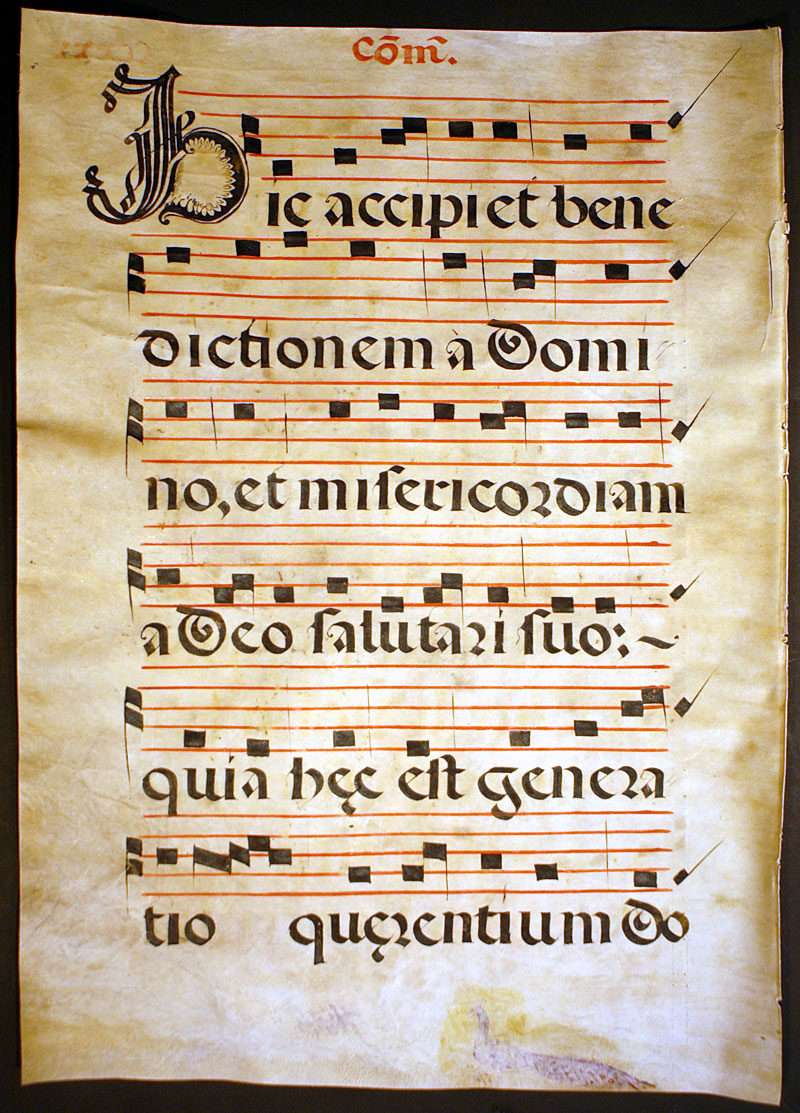 Cōm̃.
Hic accipiet bene
dictionem à Domi
no, et miſericordiam
a Deo ſalutari ſuo: ~
quia hęc eſt genera
tio quęrentium Do